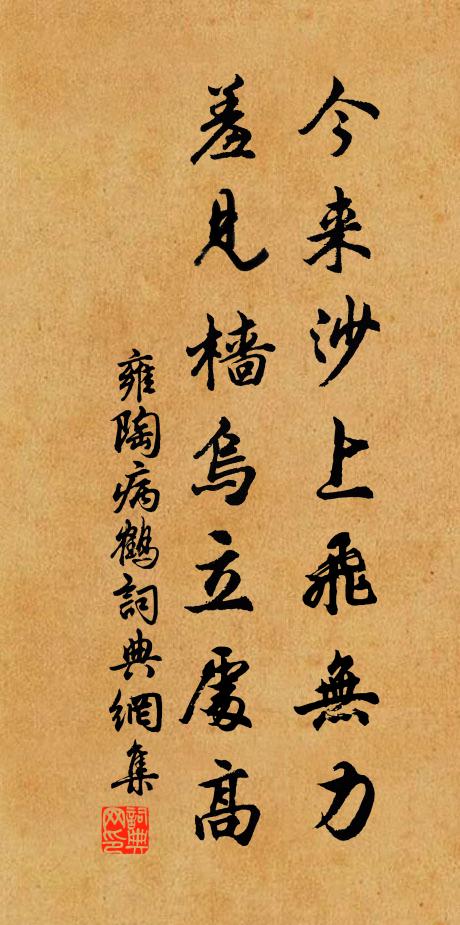 今来沙上飛無力
羞見檣烏立處高
雍陶病鶴詞典網集
詞典网印